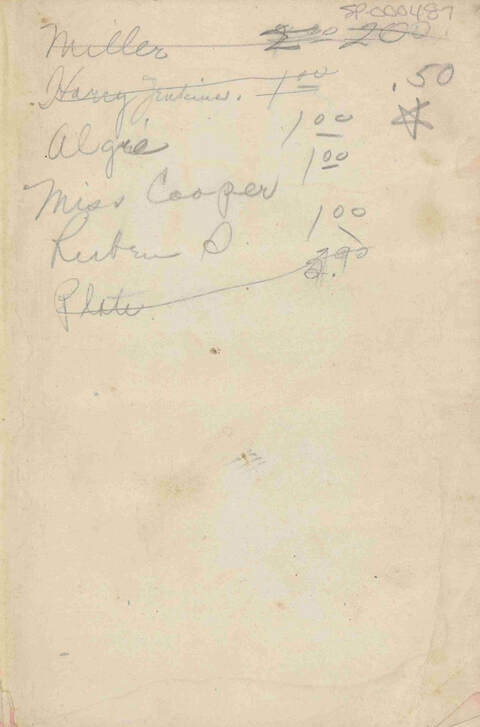 SP-000487
Miller 2.00 2.00
Harry Jenkins. 1.00 .50
Algie 1.00
Miss Cooper 1.00
Ruben D. 1.00
Photo